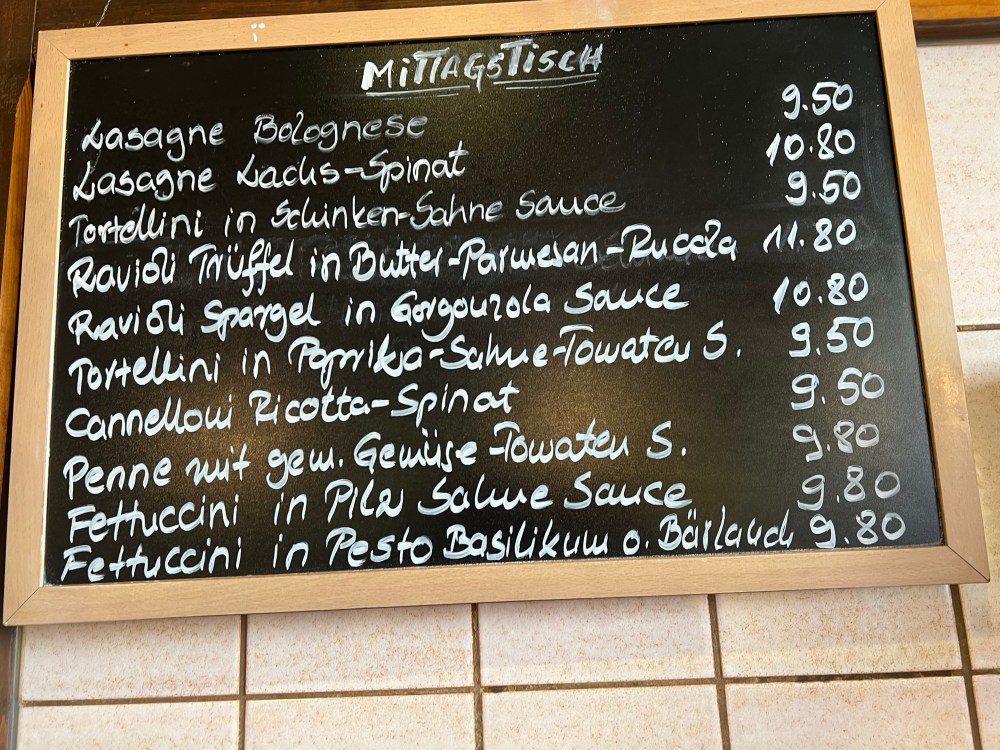 MiTTAGSTiSCH
Lasagne Bolognese 9.50
Lasagne Lachs-Spinat 10.80
Tortellini in Schinken-Sahne Sauce 9.50
Ravioli Trüffel in Butter-Parmesan-Rucola 11.80
Ravioli Spargel in Gorgonzola Sauce 10.80
Tortellini in Paprika-Sahne-Tomaten S. 9.50
Cannelloni Ricotta-Spinat 9.50
Penne mit gem. Gemüse-Tomaten S. 9.80
Fettuccini in Pilz Sahne Sauce 9.80
Fettuccini in Pesto Basilikum o. Bärlauch 9.80